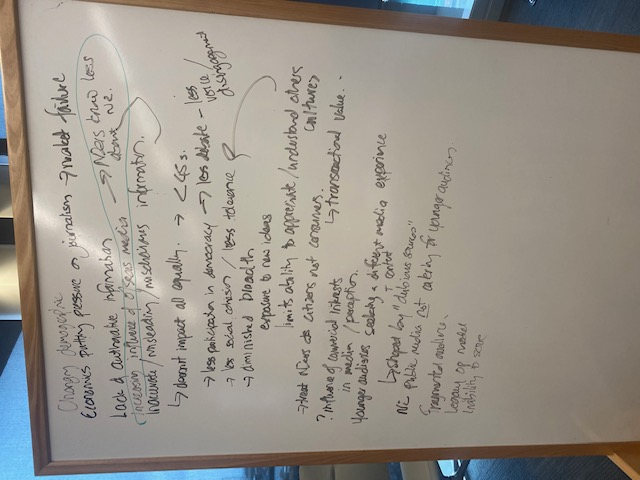 Changing demographic
Economics putting pressure on journalism → market failure
Lack of authoritative information → NZers know less about NZ.
Increasing influence of overseas media
inaccurate/misleading/mischievous information.
↳ doesn't impact all equally. → < 45s.
→ less participation in democracy → less debate - less voice/disengagement
→ less social cohesion / less tolerance
→ diminished breadth
exposure to new ideas
limits ability to appreciate/understand others cultures
→ treat NZers as citizens not consumers.
↳ transactional value..
? influence of commercial interests
in media / perception.
Younger audiences seeking a different media experience
↳ shaped by "dubious sources"
↑ content
NZ public media not catering for younger audiences.
Fragmented medium.
Legacy of model
Inability to scale